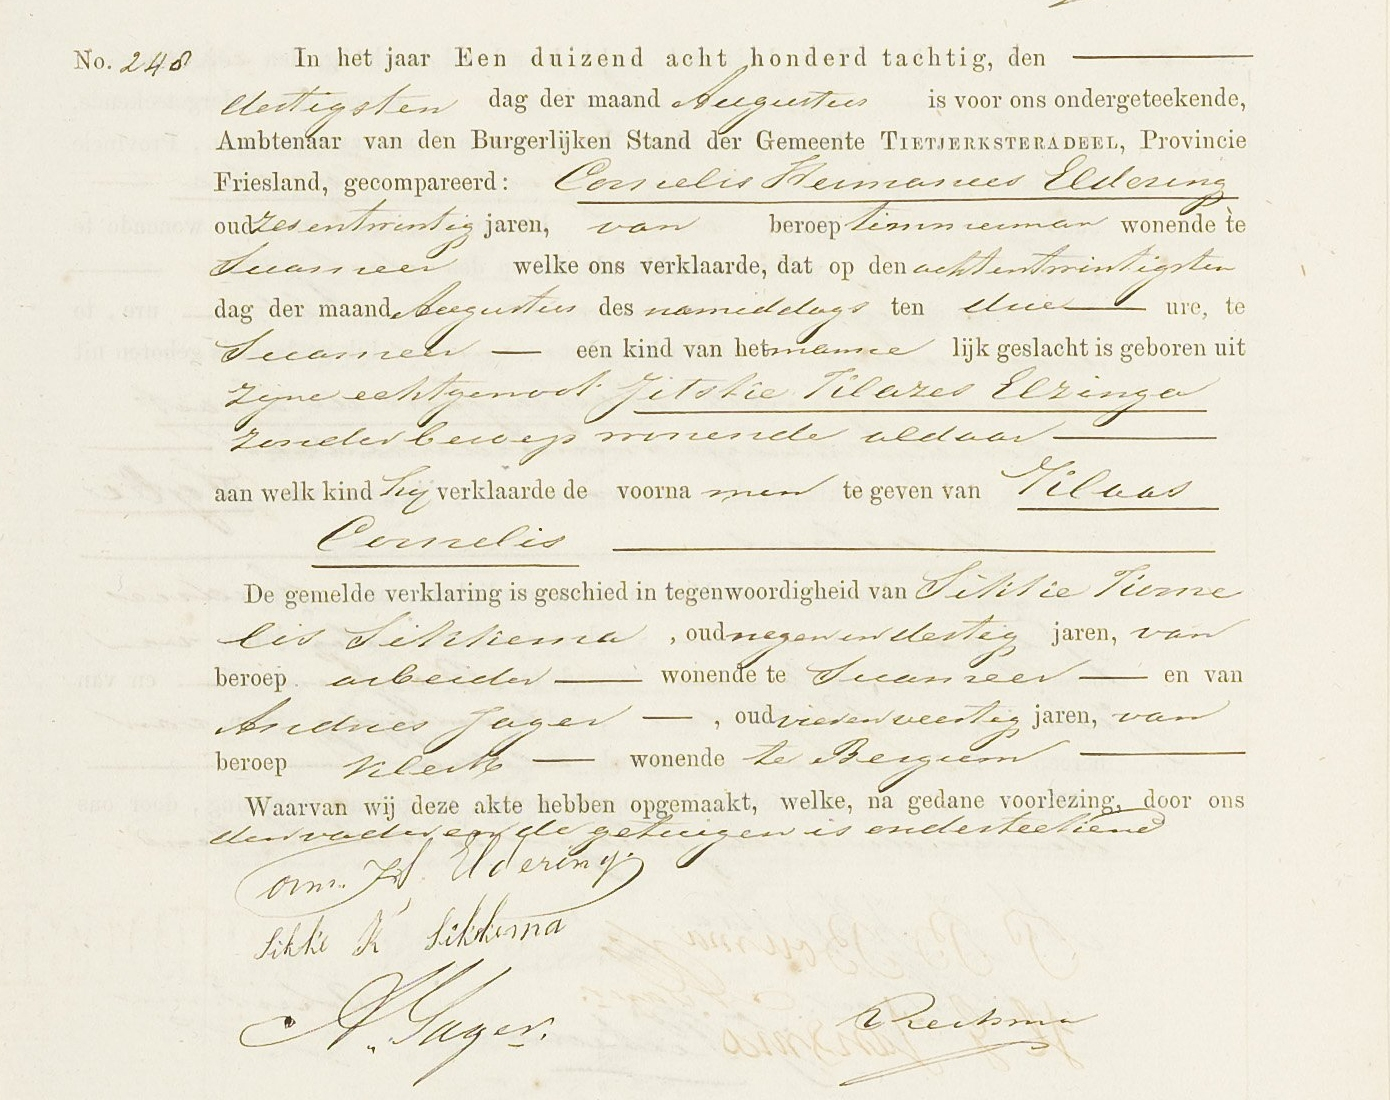 No. 248 In het jaar Een duizend acht honderd tachtig, den
dertigsten dag der maand Augustus is voor ons ondergeteekende,
Ambtenaar van den Burgerlijken Stand der Gemeente TIETJERKSTERADEEL, Provincie
Friesland, gecompareerd: Cornelis Hermanus Eldering
oud zesentwintig jaren, van beroep timmerman wonende te
Suameer welke ons verklaarde, dat op den achtentwintigsten
dag der maand Augustus des namiddags ten drie ure, te
Suameer een kind van het manne lijk geslacht is geboren uit
zijne echtgenoot Jitskie Klazes Elzinga
zonder beroep wonende aldaar
aan welk kind hij verklaarde de voorna men te geven van Klaas
Cornelis
De gemelde verklaring is geschied in tegenwoordigheid van Sikkie Korne
lis Sikkema , oud negenendertig jaren, van
beroep arbeider wonende te Suameer en van
Andries Jager , oud vierenveertig jaren, van
beroep klerk wonende te Bergum
Waarvan wij deze akte hebben opgemaakt, welke, na gedane voorlezing, door ons
den vader en de getuigen is onderteekend
Corn. H. Eldering
Sikke K Sikkema
A. Jager.